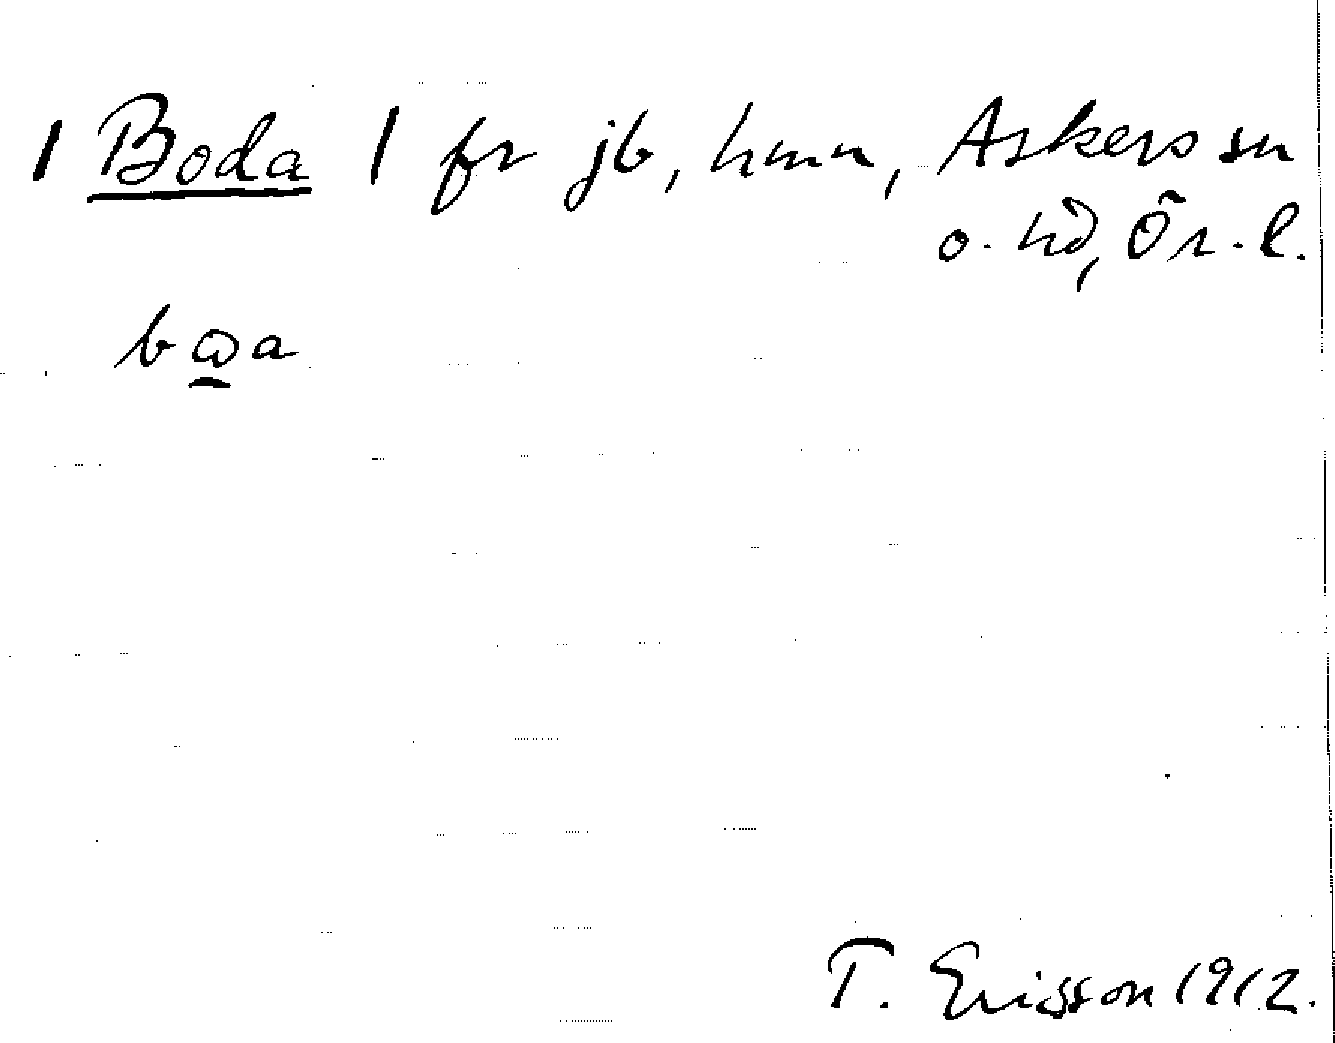 | Boda | fr jb, hmn, Askers sn
o. hd, Ör. l.
T. Ericsson 1912.